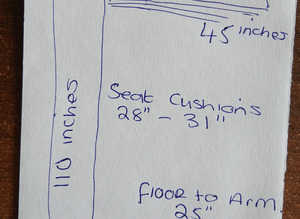 45 inches
Seat Cushions
28" - 31"
110 inches
floor to Arm
25"